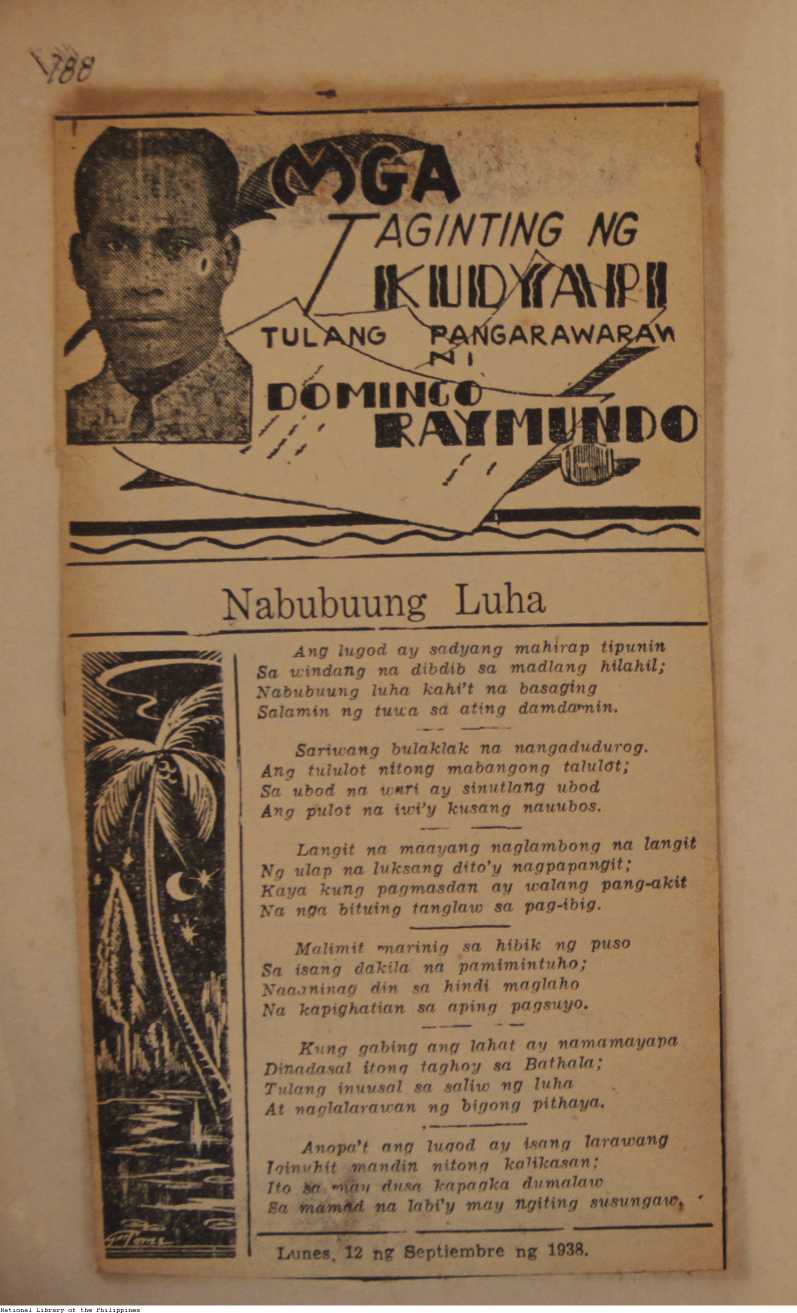 788
MGA
TAGINTING NG
KUDYAPI
TULANG PANGARAWARAW
NI
DOMINGO
RAYMUNDO
Nabubuung Luha
Ang lugod ay sadyang mahirap tipunin
Sa windang na dibdib sa madlang hilahil;
Nabubuung luha kahi't na basaging
Salamin ng tuwa sa ating damdamin.
Sariwang bulaklak na nangadudurog.
Ang tululot nitong mabangong talulot;
Sa ubod na wari ay sinutlang ubod
Ang pulot na iwi'y kusang nauubos.
Langit na maayang naglambong na langit
Ng ulap na luksang dito'y nagpapangit;
Kaya kung pagmasdan ay walang pang-akit
Na nga bituing tanglaw sa pag-ibig.
Malimit marinig sa hibik ng puso
Sa isang dakila na pamimintuho;
Naaaninag din sa hindi maglaho
Na kapighatian sa aping pagsuyo.
Kung gabing ang lahat ay namamayapa
Dinadasal itong taghoy sa Bathala;
Tulang inuusal sa saliw ng luha
At naglalarawan ng bigong pithaya.
Anopa't ang lugod ay isang larawang
Iginuhit mandin nitong kalikasan;
Ito sa may dusa kapagka dumalaw
Sa mamad na labi'y may ngiting susungaw,
Lunes, 12 ng Septiembre ng 1938.
National Library of the Philippines